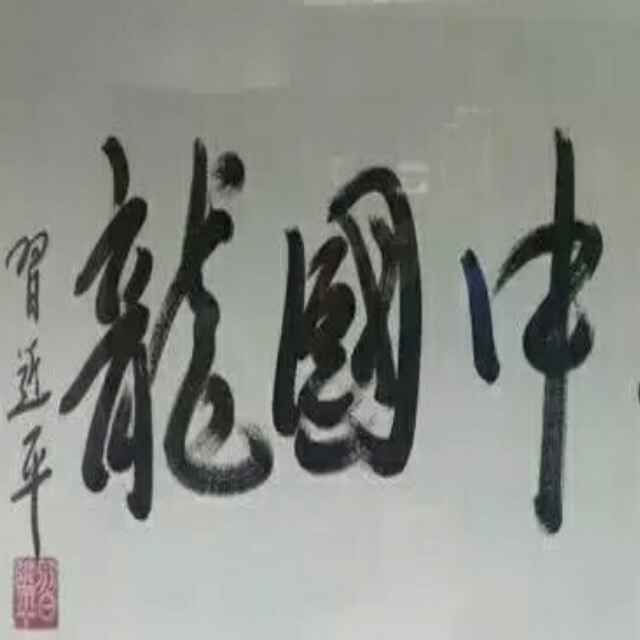 中國龍
習近平